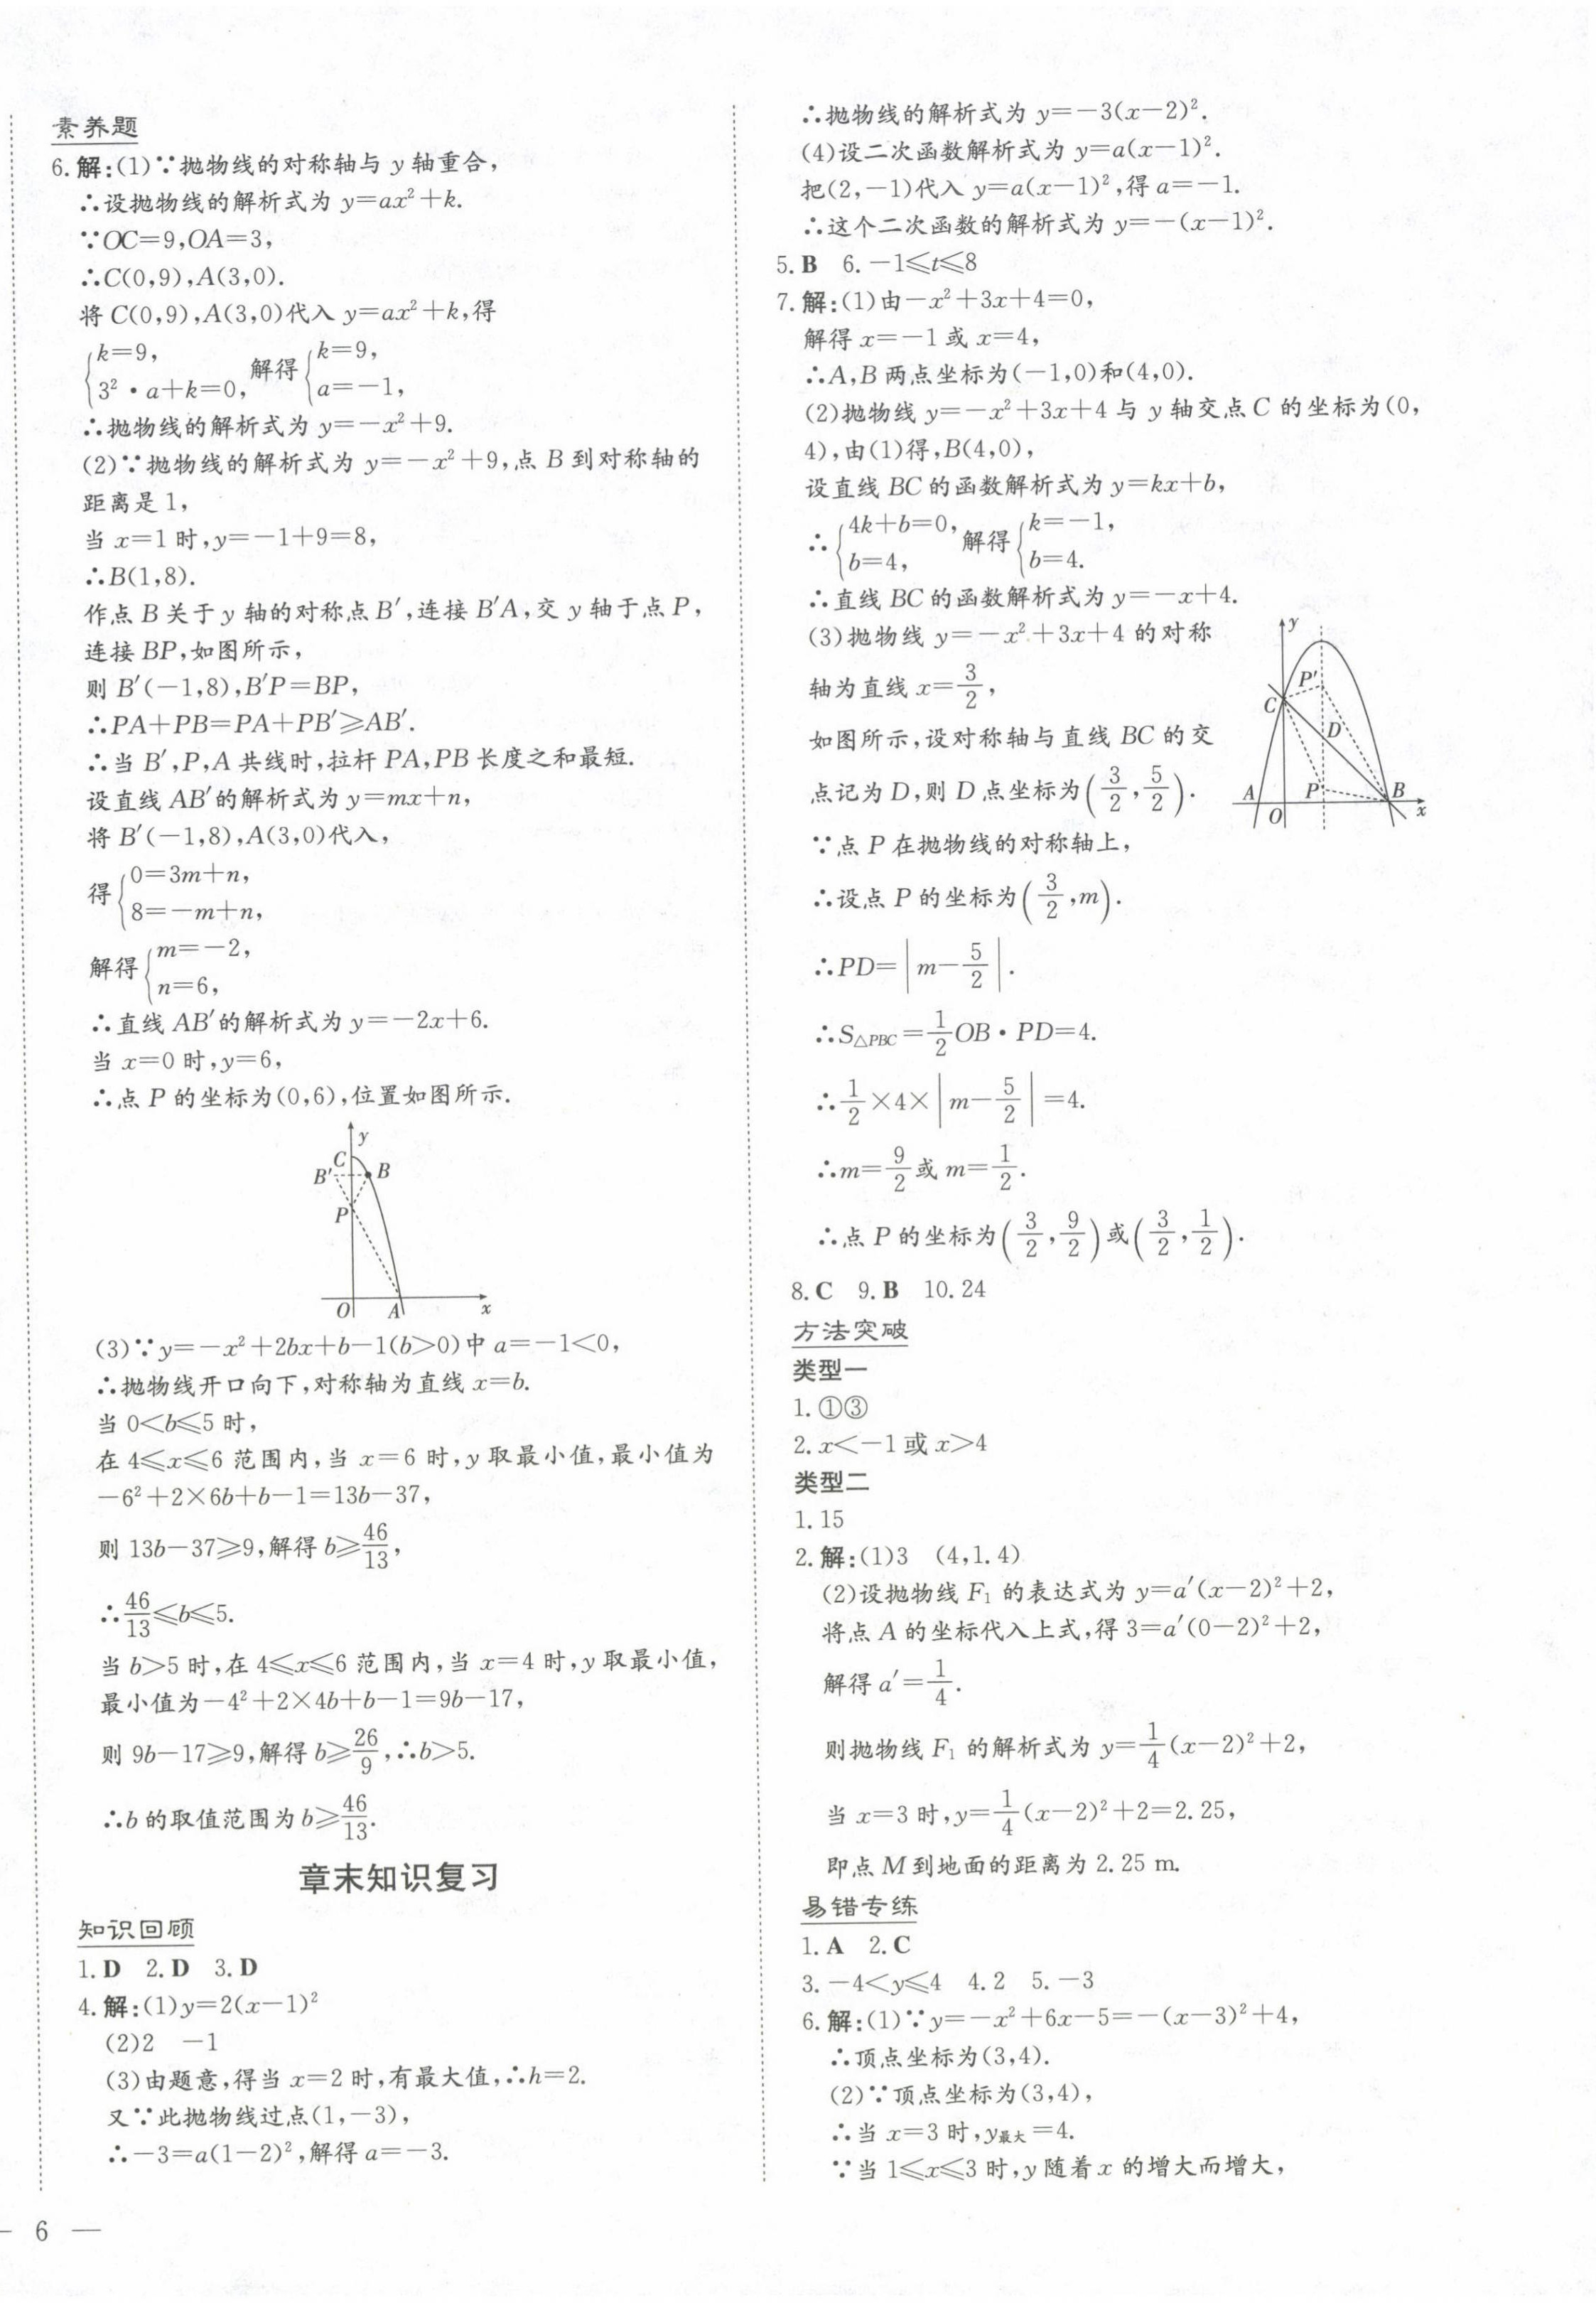 素养题
6.解:(1)∵抛物线的对称轴与 y 轴重合,
∴设抛物线的解析式为 y=ax²+k.
∵OC=9,OA=3,
∴C(0,9),A(3,0).
将 C(0,9),A(3,0)代入 y=ax²+k,得
{k=9, 3²·a+k=0, 解得{k=9, a=-1,
∴抛物线的解析式为 y=-x²+9.
(2)∵抛物线的解析式为 y=-x²+9,点 B 到对称轴的
距离是 1,
当 x=1 时,y=-1+9=8,
∴B(1,8).
作点 B 关于 y 轴的对称点 B′,连接 B′A,交 y 轴于点 P,
连接 BP,如图所示,
则 B′(-1,8),B′P=BP,
∴PA+PB=PA+PB′≥AB′.
∴当 B′,P,A 共线时,拉杆 PA,PB 长度之和最短.
设直线 AB′的解析式为 y=mx+n,
将 B′(-1,8),A(3,0)代入,
得{0=3m+n, 8=-m+n,
解得{m=-2, n=6,
∴直线 AB′的解析式为 y=-2x+6.
当 x=0 时,y=6,
∴点 P 的坐标为(0,6),位置如图所示.
y
C
B′ B
P
O A x
(3)∵y=-x²+2bx+b-1(b>0)中 a=-1<0,
∴抛物线开口向下,对称轴为直线 x=b.
当 0<b≤5 时,
在 4≤x≤6 范围内,当 x=6 时,y 取最小值,最小值为
-6²+2×6b+b-1=13b-37,
则 13b-37≥9,解得 b≥46/13,
∴46/13≤b≤5.
当 b>5 时,在 4≤x≤6 范围内,当 x=4 时,y 取最小值,
最小值为-4²+2×4b+b-1=9b-17,
则 9b-17≥9,解得 b≥26/9,∴b>5.
∴b 的取值范围为 b≥46/13.
章末知识复习
知识回顾
1.D 2.D 3.D
4.解:(1)y=2(x-1)²
(2)2 -1
(3)由题意,得当 x=2 时,有最大值,∴h=2.
又∵此抛物线过点(1,-3),
∴-3=a(1-2)²,解得 a=-3.
— 6 —
∴抛物线的解析式为 y=-3(x-2)².
(4)设二次函数解析式为 y=a(x-1)².
把(2,-1)代入 y=a(x-1)²,得 a=-1.
∴这个二次函数的解析式为 y=-(x-1)².
5.B 6.-1≤t≤8
7.解:(1)由-x²+3x+4=0,
解得 x=-1 或 x=4,
∴A,B 两点坐标为(-1,0)和(4,0).
(2)抛物线 y=-x²+3x+4 与 y 轴交点 C 的坐标为(0,
4),由(1)得,B(4,0),
设直线 BC 的函数解析式为 y=kx+b,
∴{4k+b=0, b=4, 解得{k=-1, b=4.
∴直线 BC 的函数解析式为 y=-x+4.
(3)抛物线 y=-x²+3x+4 的对称
轴为直线 x=3/2,
如图所示,设对称轴与直线 BC 的交
点记为 D,则 D 点坐标为(3/2,5/2).
y
P′
C
D
A P B
O x
∵点 P 在抛物线的对称轴上,
∴设点 P 的坐标为(3/2,m).
∴PD=|m-5/2|.
∴S△PBC=1/2OB·PD=4.
∴1/2×4×|m-5/2|=4.
∴m=9/2或 m=1/2.
∴点 P 的坐标为(3/2,9/2)或(3/2,1/2).
8.C 9.B 10.24
方法突破
类型一
1.①③
2.x<-1 或 x>4
类型二
1.15
2.解:(1)3 (4,1.4)
(2)设抛物线 F₁ 的表达式为 y=a′(x-2)²+2,
将点 A 的坐标代入上式,得 3=a′(0-2)²+2,
解得 a′=1/4.
则抛物线 F₁ 的解析式为 y=1/4(x-2)²+2,
当 x=3 时,y=1/4(x-2)²+2=2.25,
即点 M 到地面的距离为 2.25 m.
易错专练
1.A 2.C
3.-4<y≤4 4.2 5.-3
6.解:(1)∵y=-x²+6x-5=-(x-3)²+4,
∴顶点坐标为(3,4).
(2)∵顶点坐标为(3,4),
∴当 x=3 时,y最大=4.
∵当 1≤x≤3 时,y 随着 x 的增大而增大,